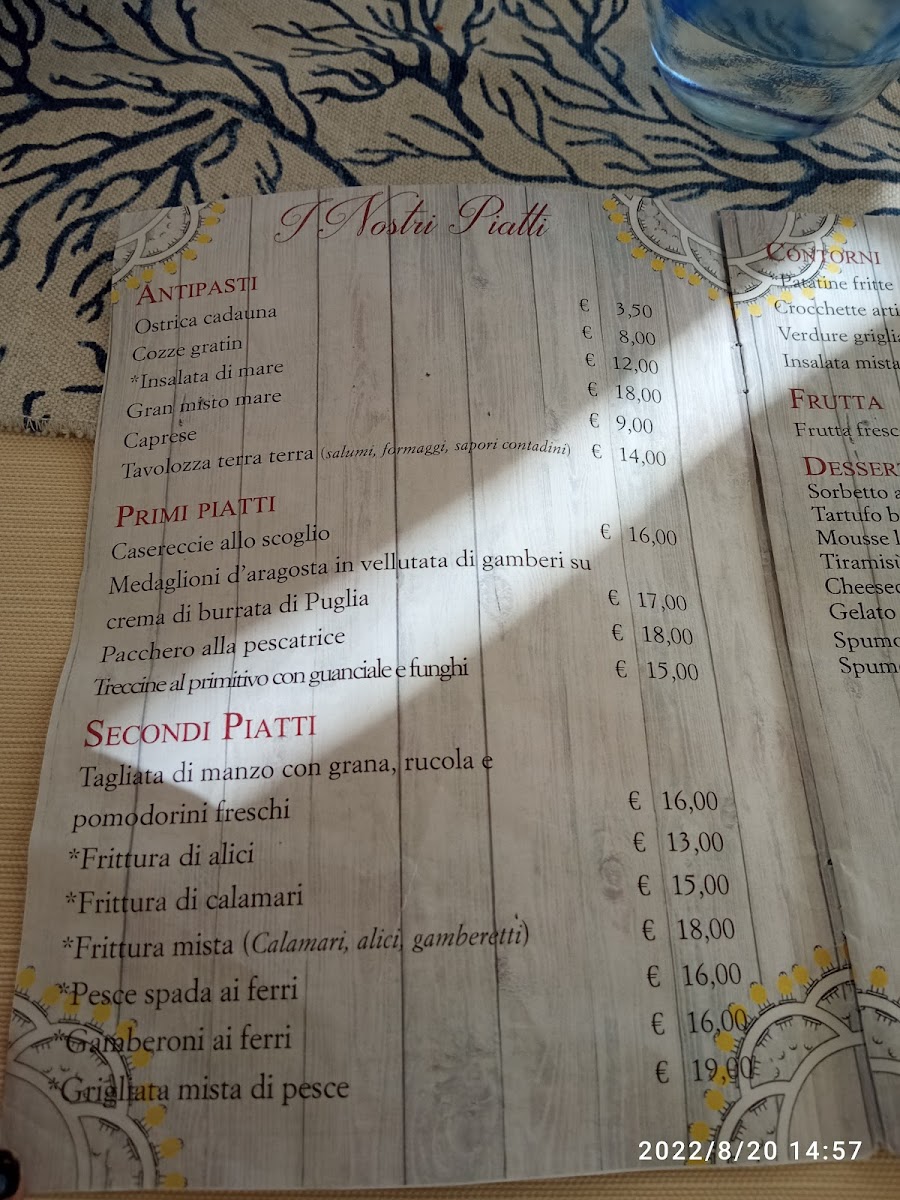 I Nostri Piatti
ANTIPASTI
Ostrica cadauna € 3,50
Cozze gratin € 8,00
*Insalata di mare € 12,00
Gran misto mare € 18,00
Caprese € 9,00
Tavolozza terra terra (salumi, formaggi, sapori contadini) € 14,00
PRIMI PIATTI
Casereccie allo scoglio € 16,00
Medaglioni d'aragosta in vellutata di gamberi su
crema di burrata di Puglia € 17,00
Pacchero alla pescatrice € 18,00
Treccine al primitivo con guanciale e funghi € 15,00
SECONDI PIATTI
Tagliata di manzo con grana, rucola e
pomodorini freschi € 16,00
*Frittura di alici € 13,00
*Frittura di calamari € 15,00
*Frittura mista (Calamari, alici, gamberetti) € 18,00
*Pesce spada ai ferri € 16,00
*Gamberoni ai ferri € 16,00
*Grigliata mista di pesce € 19,00
CONTORNI
*Patatine fritte
Crocchette arti
Verdure griglia
Insalata mista
FRUTTA
Frutta fresc
DESSERT
Sorbetto a
Tartufo b
Mousse l
Tiramisì
Cheesec
Gelato
Spumo
Spumo
2022/8/20 14:57